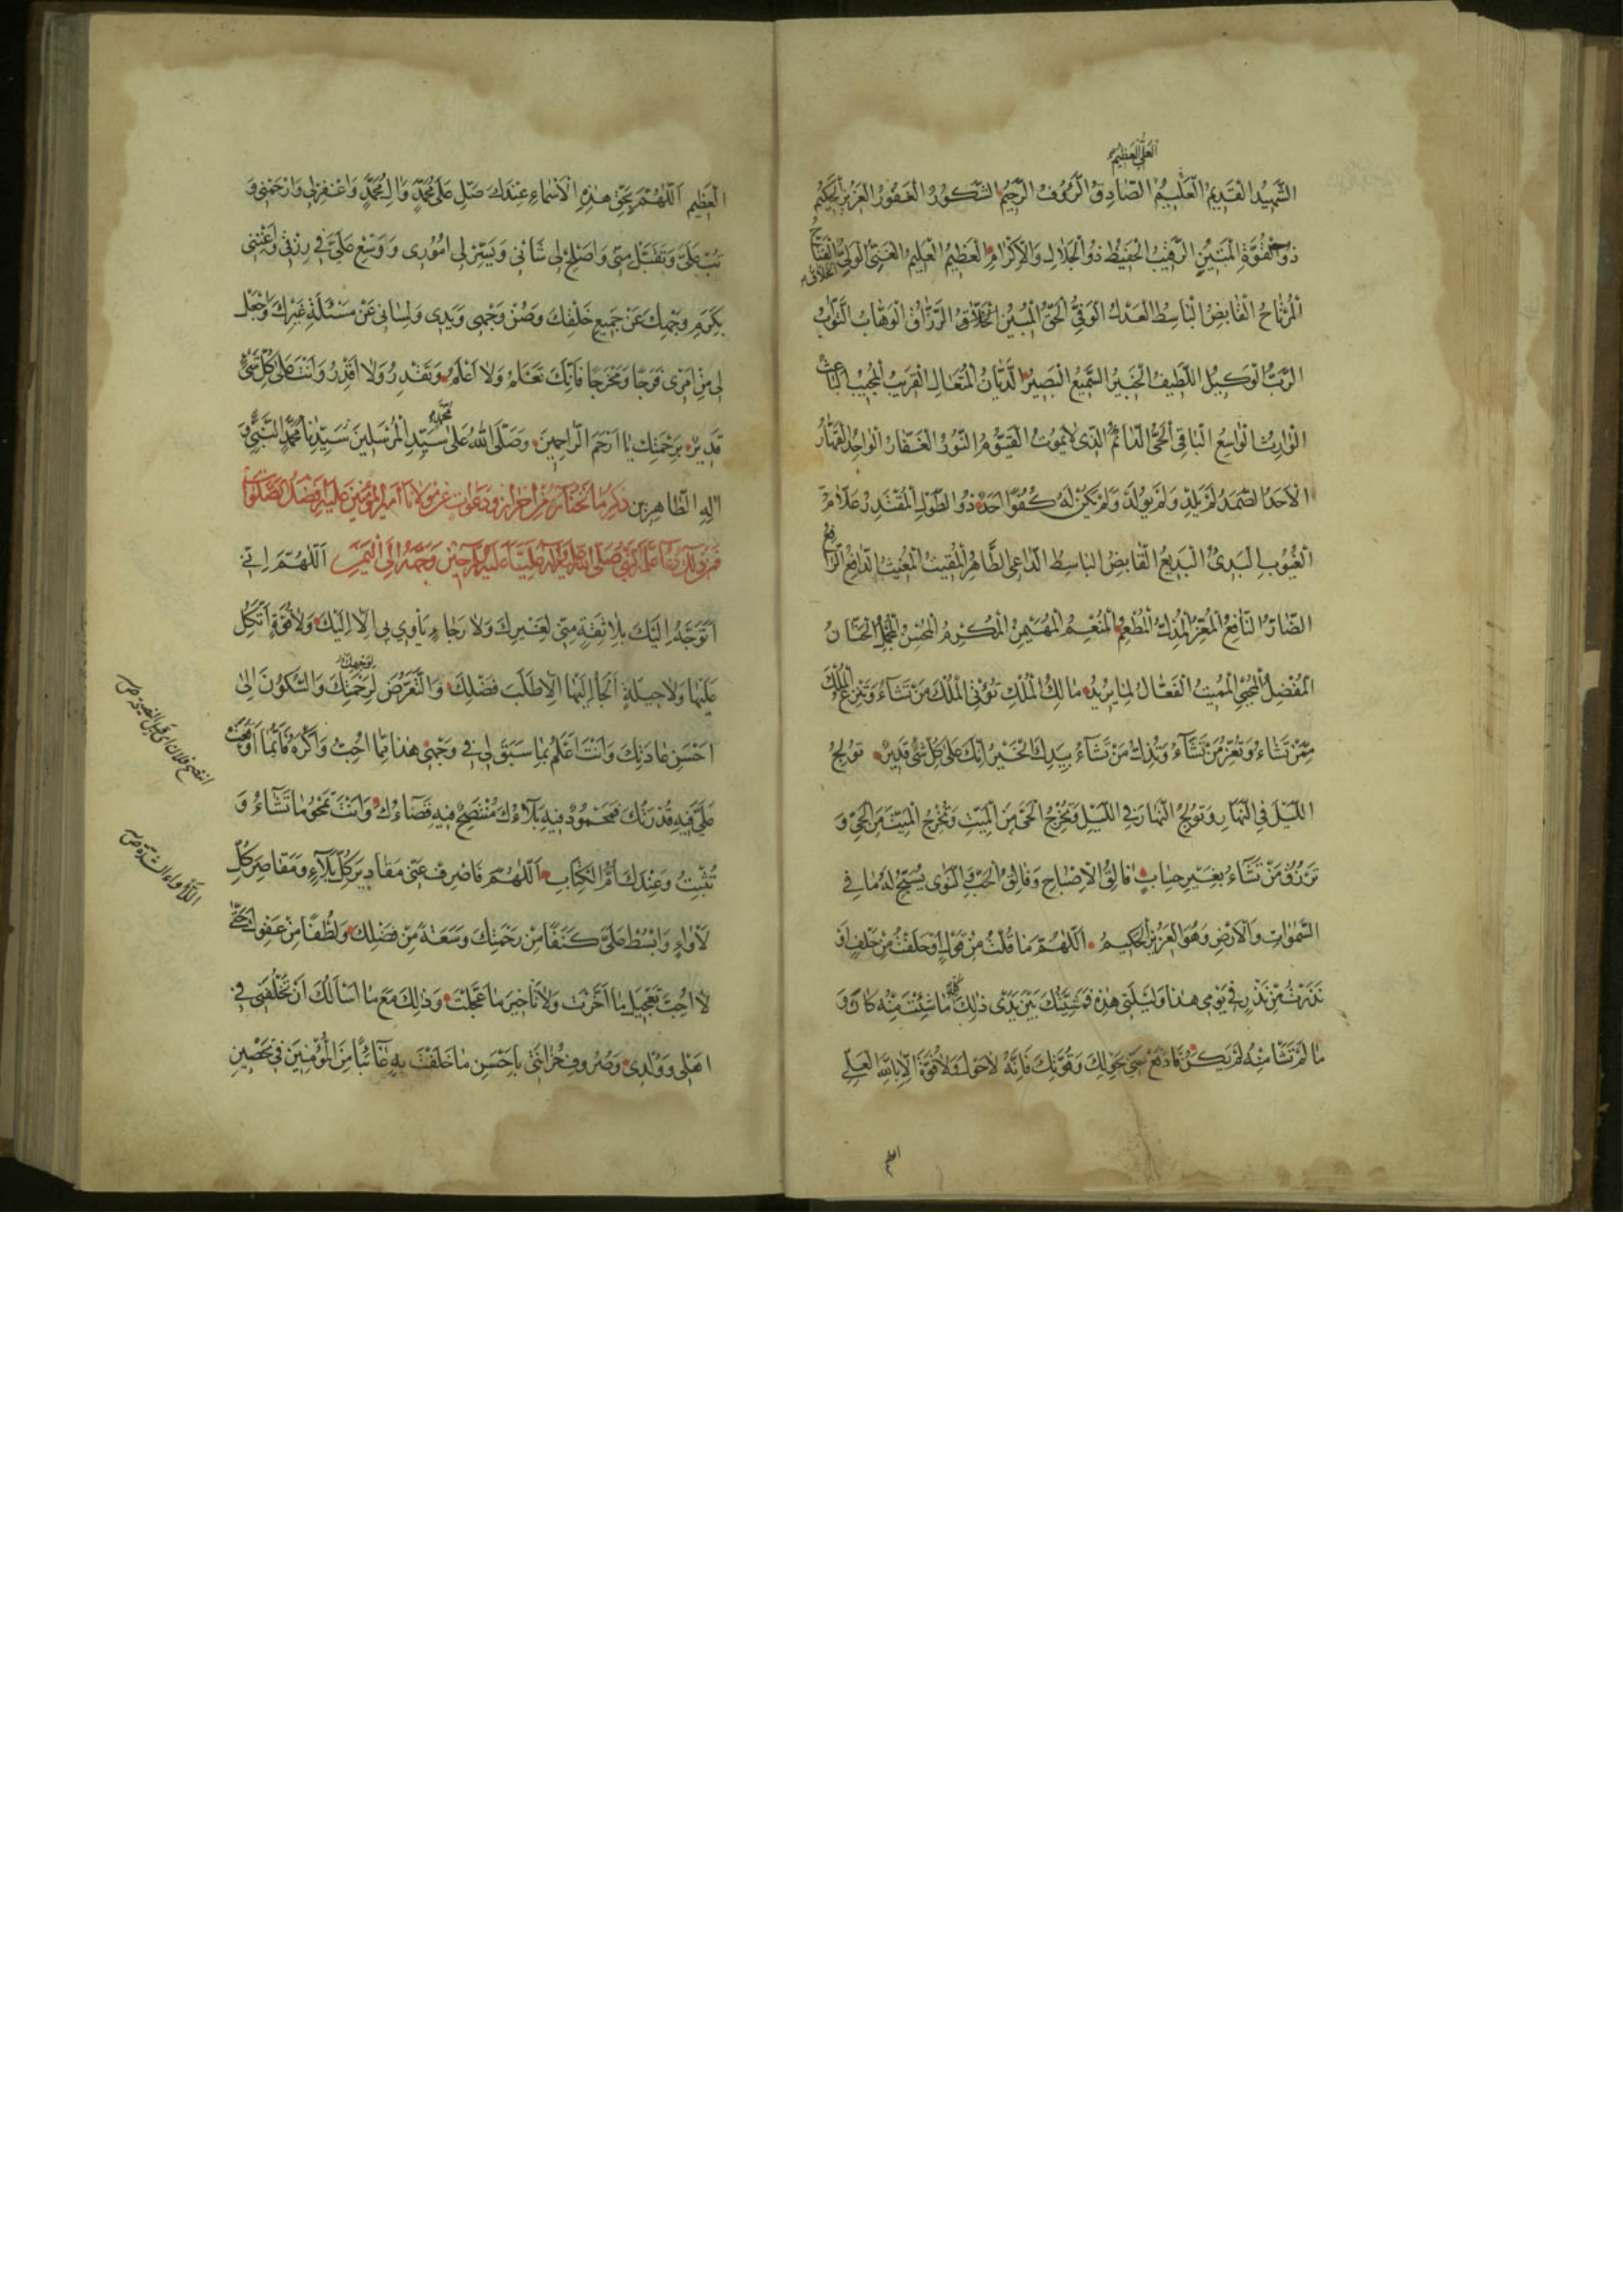 العلي العظيم
الشَّهِيدُ الْقَدِيمُ الْعَلِيمُ الصَّادِقُ الرَّؤُوفُ الرَّحِيمُ الشَّكُورُ الْغَفُورُ الْعَزِيزُ الْحَكِيمُ
ذُو الْقُوَّةِ الْمَتِينُ الرَّقِيبُ الْحَفِيظُ ذُو الْجَلَالِ وَالْإِكْرَامِ الْعَظِيمُ الْعَلِيمُ الْغَنِيُّ الْوَلِيُّ الْفَتَّاحُ
الْمُرْتَاحُ الْقَابِضُ الْبَاسِطُ الْعَدْلُ الْوَفِيُّ الْحَقُّ الْمُبِينُ الْخَلَّاقُ الرَّزَّاقُ الْوَهَّابُ التَّوَّابُ
الرَّبُّ الْوَكِيلُ اللَّطِيفُ الْخَبِيرُ السَّمِيعُ الْبَصِيرُ الدَّيَّانُ الْمُتَعَالِ الْقَرِيبُ الْمُجِيبُ الْبَاعِثُ
الْوَارِثُ الْوَاسِعُ الْبَاقِي الْحَيُّ الدَّائِمُ الَّذِي لَا يَمُوتُ الْقَيُّومُ النُّورُ الْغَفَّارُ الْوَاحِدُ الْقَهَّارُ
الْأَحَدُ الصَّمَدُ لَمْ يَلِدْ وَلَمْ يُولَدْ وَلَمْ يَكُنْ لَهُ كُفُوًا أَحَدٌ ذُو الطَّوْلِ الْمُقْتَدِرُ عَلَّامُ
الْغُيُوبِ الْبَدِيءُ الْبَدِيعُ الْقَابِضُ الْبَاسِطُ الدَّاعِي الظَّاهِرُ الْمُقِيتُ الْمُغِيثُ الدَّافِعُ الرَّافِعُ
الضَّارُّ النَّافِعُ الْمُعِزُّ الْمُذِلُّ الْمُطْعِمُ الْمُنْعِمُ الْمُهَيْمِنُ الْمُكْرِمُ الْمُحْسِنُ الْمُجْمِلُ الْحَنَّانُ
الْمُفْضِلُ الْمُحْيِي الْمُمِيتُ الْفَعَّالُ لِمَا يُرِيدُ مَالِكُ الْمُلْكِ تُؤْتِي الْمُلْكَ مَنْ تَشَاءُ وَتَنْزِعُ الْمُلْكَ
مِمَّنْ تَشَاءُ وَتُعِزُّ مَنْ تَشَاءُ وَتُذِلُّ مَنْ تَشَاءُ بِيَدِكَ الْخَيْرُ إِنَّكَ عَلَى كُلِّ شَيْءٍ قَدِيرٌ تُولِجُ
اللَّيْلَ فِي النَّهَارِ وَتُولِجُ النَّهَارَ فِي اللَّيْلِ وَتُخْرِجُ الْحَيَّ مِنَ الْمَيِّتِ وَتُخْرِجُ الْمَيِّتَ مِنَ الْحَيِّ وَ
تَرْزُقُ مَنْ تَشَاءُ بِغَيْرِ حِسَابٍ فَالِقُ الْإِصْبَاحِ وَفَالِقُ الْحَبِّ وَالنَّوَى يُسَبِّحُ لَهُ مَا فِي
السَّمٰوَاتِ وَالْأَرْضِ وَهُوَ الْعَزِيزُ الْحَكِيمُ اللّٰهُمَّ مَا قُلْتُ مِنْ قَوْلٍ أَوْ حَلَفْتُ مِنْ حَلْفٍ أَوْ
نَذَرْتُ مِنْ نَذْرٍ فِي يَوْمِي هٰذَا وَلَيْلَتِي هٰذِهِ فَمَشِيَّتُكَ بَيْنَ يَدَيْ ذٰلِكَ كُلِّهِ مَا شِئْتَ مِنْهُ كَانَ وَ
مَا لَمْ تَشَأْ مِنْهُ لَمْ يَكُنْ فَادْفَعْ عَنِّي بِحَوْلِكَ وَقُوَّتِكَ فَإِنَّهُ لَا حَوْلَ وَلَا قُوَّةَ إِلَّا بِاللهِ الْعَلِيِّ
الْعَظِيمِ اللّٰهُمَّ بِحَقِّ هٰذِهِ الْأَسْمَاءِ عِنْدَكَ صَلِّ عَلَى مُحَمَّدٍ وَآلِ مُحَمَّدٍ وَاغْفِرْ لِي وَارْحَمْنِي وَ
تُبْ عَلَيَّ وَتَقَبَّلْ مِنِّي وَأَصْلِحْ لِي شَأْنِي وَيَسِّرْ لِي أُمُورِي وَوَسِّعْ عَلَيَّ فِي رِزْقِي وَأَغْنِنِي
بِكَرَمِ وَجْهِكَ عَنْ جَمِيعِ خَلْقِكَ وَصُنْ وَجْهِي وَيَدِي وَلِسَانِي عَنْ مَسْئَلَةِ غَيْرِكَ وَاجْعَلْ
لِي مِنْ أَمْرِي فَرَجًا وَمَخْرَجًا فَإِنَّكَ تَعْلَمُ وَلَا أَعْلَمُ وَتَقْدِرُ وَلَا أَقْدِرُ وَأَنْتَ عَلَى كُلِّ شَيْءٍ
قَدِيرٌ بِرَحْمَتِكَ يَا أَرْحَمَ الرَّاحِمِينَ وَصَلَّى اللهُ عَلَى سَيِّدِ الْمُرْسَلِينَ سَيِّدِنَا مُحَمَّدٍ النَّبِيِّ وَ
آلِهِ الطَّاهِرِينَ ذكر ما نختاره من احراز ودعوات عن مولانا أمير المؤمنين عليه أفضل الصلوات
فمن ذلك دعاء علمه النبي صلى الله عليه وآله عليا عليه السلام حين وجهه الى اليمن اللّٰهُمَّ إِنِّي
أَتَوَجَّهُ إِلَيْكَ بِلَا ثِقَةٍ مِنِّي لِغَيْرِكَ وَلَا رَجَاءٍ يَأْوِي بِي إِلَّا إِلَيْكَ وَلَا قُوَّةٍ أَتَّكِلُ
عَلَيْهَا وَلَا حِيلَةٍ أَلْجَأُ إِلَيْهَا إِلَّا طَلَبَ فَضْلِكَ وَالتَّعَرُّضَ لِرَحْمَتِكَ وَالسُّكُونَ إِلَى
أَحْسَنِ عَادَتِكَ وَأَنْتَ أَعْلَمُ بِمَا سَبَقَ لِي فِي وَجْهِي هٰذَا مِمَّا أُحِبُّ وَأَكْرَهُ فَأَيُّمَا أَوْقَعْتَ
عَلَيَّ فِيهِ قُدْرَتَكَ فَمَحْمُودٌ فِيهِ بَلَاؤُكَ مُنْتَصِحٌ فِيهِ قَضَاؤُكَ وَأَنْتَ تَمْحُو مَا تَشَاءُ وَ
تُثْبِتُ وَعِنْدَكَ أُمُّ الْكِتَابِ اللّٰهُمَّ فَاصْرِفْ عَنِّي مَقَادِيرَ كُلِّ بَلَاءٍ وَمَقَاصِرَ كُلِّ
لَأْوَاءٍ وَابْسُطْ عَلَيَّ كَنَفًا مِنْ رَحْمَتِكَ وَسَعَةً مِنْ فَضْلِكَ وَلُطْفًا مِنْ عَفْوِكَ حَتَّى
لَا أُحِبَّ تَعْجِيلَ مَا أَخَّرْتَ وَلَا تَأْخِيرَ مَا عَجَّلْتَ وَذٰلِكَ مَعَ مَا أَسْأَلُكَ أَنْ تَخْلُفَنِي فِي
أَهْلِي وَوُلْدِي وَصُرُوفِ حُزَانَتِي بِأَحْسَنِ مَا خَلَفْتَ بِهِ غَائِبًا مِنَ الْمُؤْمِنِينَ فِي تَحْصِينِ
انتصح فلان اى قبل النصيحة ص
اللأواء الشدة ص